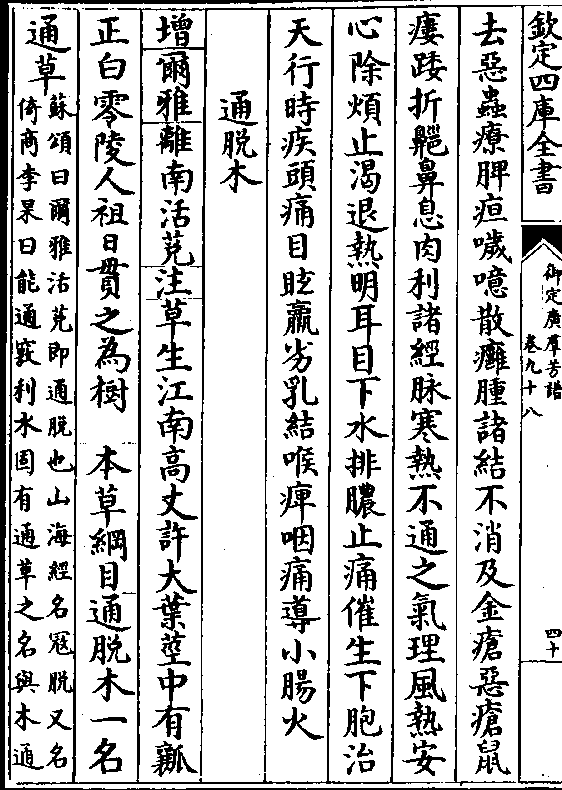 欽定四庫全書
御定廣羣芳譜
卷九十八
四十
去惡蟲療脾疸噦噫散癰腫諸結不消及金瘡惡瘡鼠
瘻踒折齆鼻息肉利諸經脉寒熱不通之氣理風熱安
心除煩止渴退熱明耳目下水排膿止痛催生下胞治
天行時疾頭痛目眩羸劣乳結喉痺咽痛導小腸火
通脱木
增爾雅離南活莌注草生江南高丈許大葉莖中有瓤
正白零陵人祖日貫之為樹 本草綱目通脱木一名
通草蘇頌曰爾雅活莌即通脱也山海經名冦脱又名
倚商李杲曰能通竅利水固有通草之名與木通